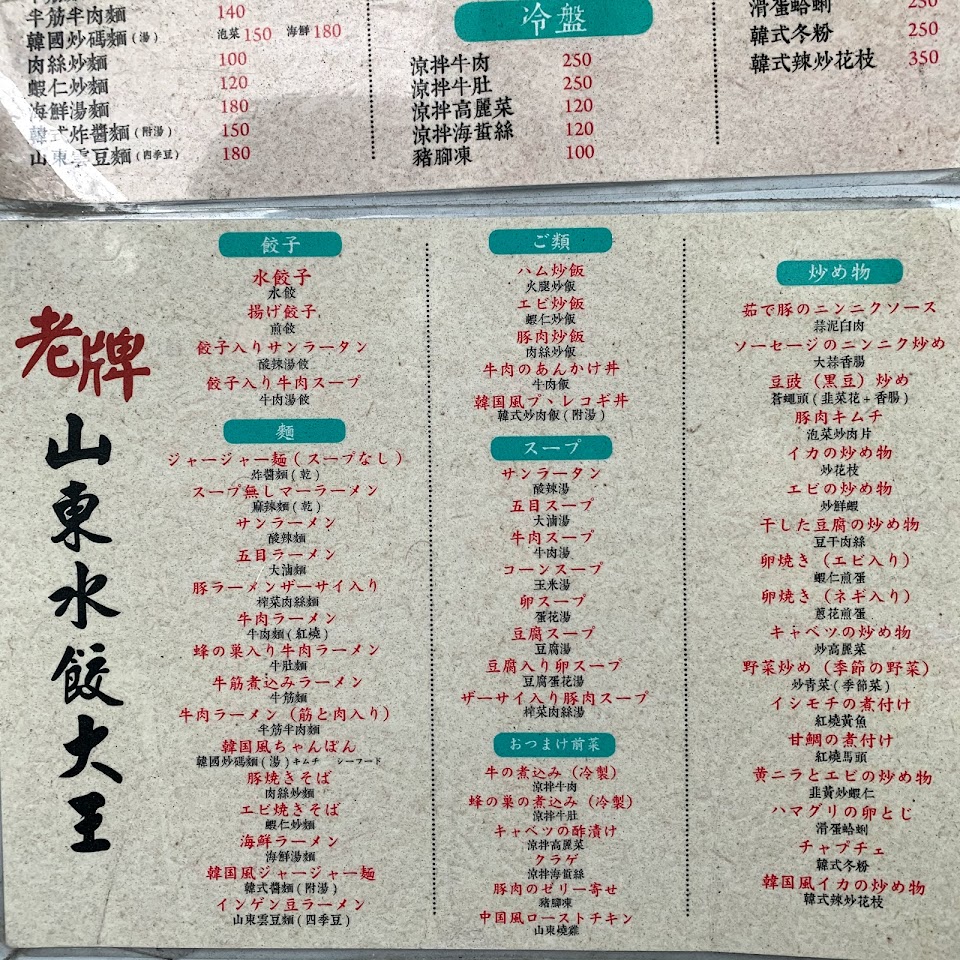 半筋半肉麵 140
韓國炒碼麵(湯) 泡菜150 海鮮180
肉絲炒麵 100
蝦仁炒麵 120
海鮮湯麵 180
韓式炸醬麵(附湯) 150
山東雲豆麵(四季豆) 180
冷盤
涼拌牛肉 250
涼拌牛肚 250
涼拌高麗菜 120
涼拌海蜇絲 120
豬腳凍 100
滑蛋蛤蜊 250
韓式冬粉 250
韓式辣炒花枝 350
老牌
山東水餃大王
餃子
水餃子
水餃
揚げ餃子
煎餃
餃子入りサンラータン
酸辣湯餃
餃子入り牛肉スープ
牛肉湯餃
麵
ジャージャー麺(スープなし)
炸醬麵(乾)
スープ無しマーラーメン
麻辣麵(乾)
サンラーメン
酸辣麵
五目ラーメン
大滷麵
豚ラーメンザーサイ入り
榨菜肉絲麵
牛肉ラーメン
牛肉麵(紅燒)
蜂の巣入り牛肉ラーメン
牛肚麵
牛筋煮込みラーメン
牛筋麵
牛肉ラーメン(筋と肉入り)
半筋半肉麵
韓国風ちゃんぽん
韓國炒碼麵(湯)キムチ シーフード
豚焼きそば
肉絲炒麵
エビ焼きそば
蝦仁炒麵
海鮮ラーメン
海鮮湯麵
韓国風ジャージャー麺
韓式醬麵(附湯)
インゲン豆ラーメン
山東雲豆麵(四季豆)
ご類
ハム炒飯
火腿炒飯
エビ炒飯
蝦仁炒飯
豚肉炒飯
肉絲炒飯
牛肉のあんかけ丼
牛肉飯
韓国風プ、レコギ丼
韓式炒肉飯(附湯)
スープ
サンラータン
酸辣湯
五目スープ
大滷湯
牛肉スープ
牛肉湯
コーンスープ
玉米湯
卵スープ
蛋花湯
豆腐スープ
豆腐湯
豆腐入り卵スープ
豆腐蛋花湯
ザーサイ入り豚肉スープ
榨菜肉絲湯
おつまけ前菜
牛の煮込み(冷製)
涼拌牛肉
蜂の巣の煮込み(冷製)
涼拌牛肚
キャベツの酢漬け
涼拌高麗菜
クラゲ
涼拌海蜇絲
豚肉のゼリー寄せ
豬腳凍
中国風ローストチキン
山東燒雞
炒め物
茹で豚のニンニクソース
蒜泥白肉
ソーセージのニンニク炒め
大蒜香腸
豆豉(黒豆)炒め
蒼蠅頭(韭菜花+香腸)
豚肉キムチ
泡菜炒肉片
イカの炒め物
炒花枝
エビの炒め物
炒鮮蝦
干した豆腐の炒め物
豆干肉絲
卵焼き(エビ入り)
蝦仁煎蛋
卵焼き(ネギ入り)
蔥花煎蛋
キャベツの炒め物
炒高麗菜
野菜炒め(季節の野菜)
炒青菜(季節菜)
イシモチの煮付け
紅燒黃魚
甘鯛の煮付け
紅燒馬頭
黄ニラとエビの炒め物
韭黃炒蝦仁
ハマグリの卵とじ
滑蛋蛤蜊
チャプチェ
韓式冬粉
韓国風イカの炒め物
韓式辣炒花枝